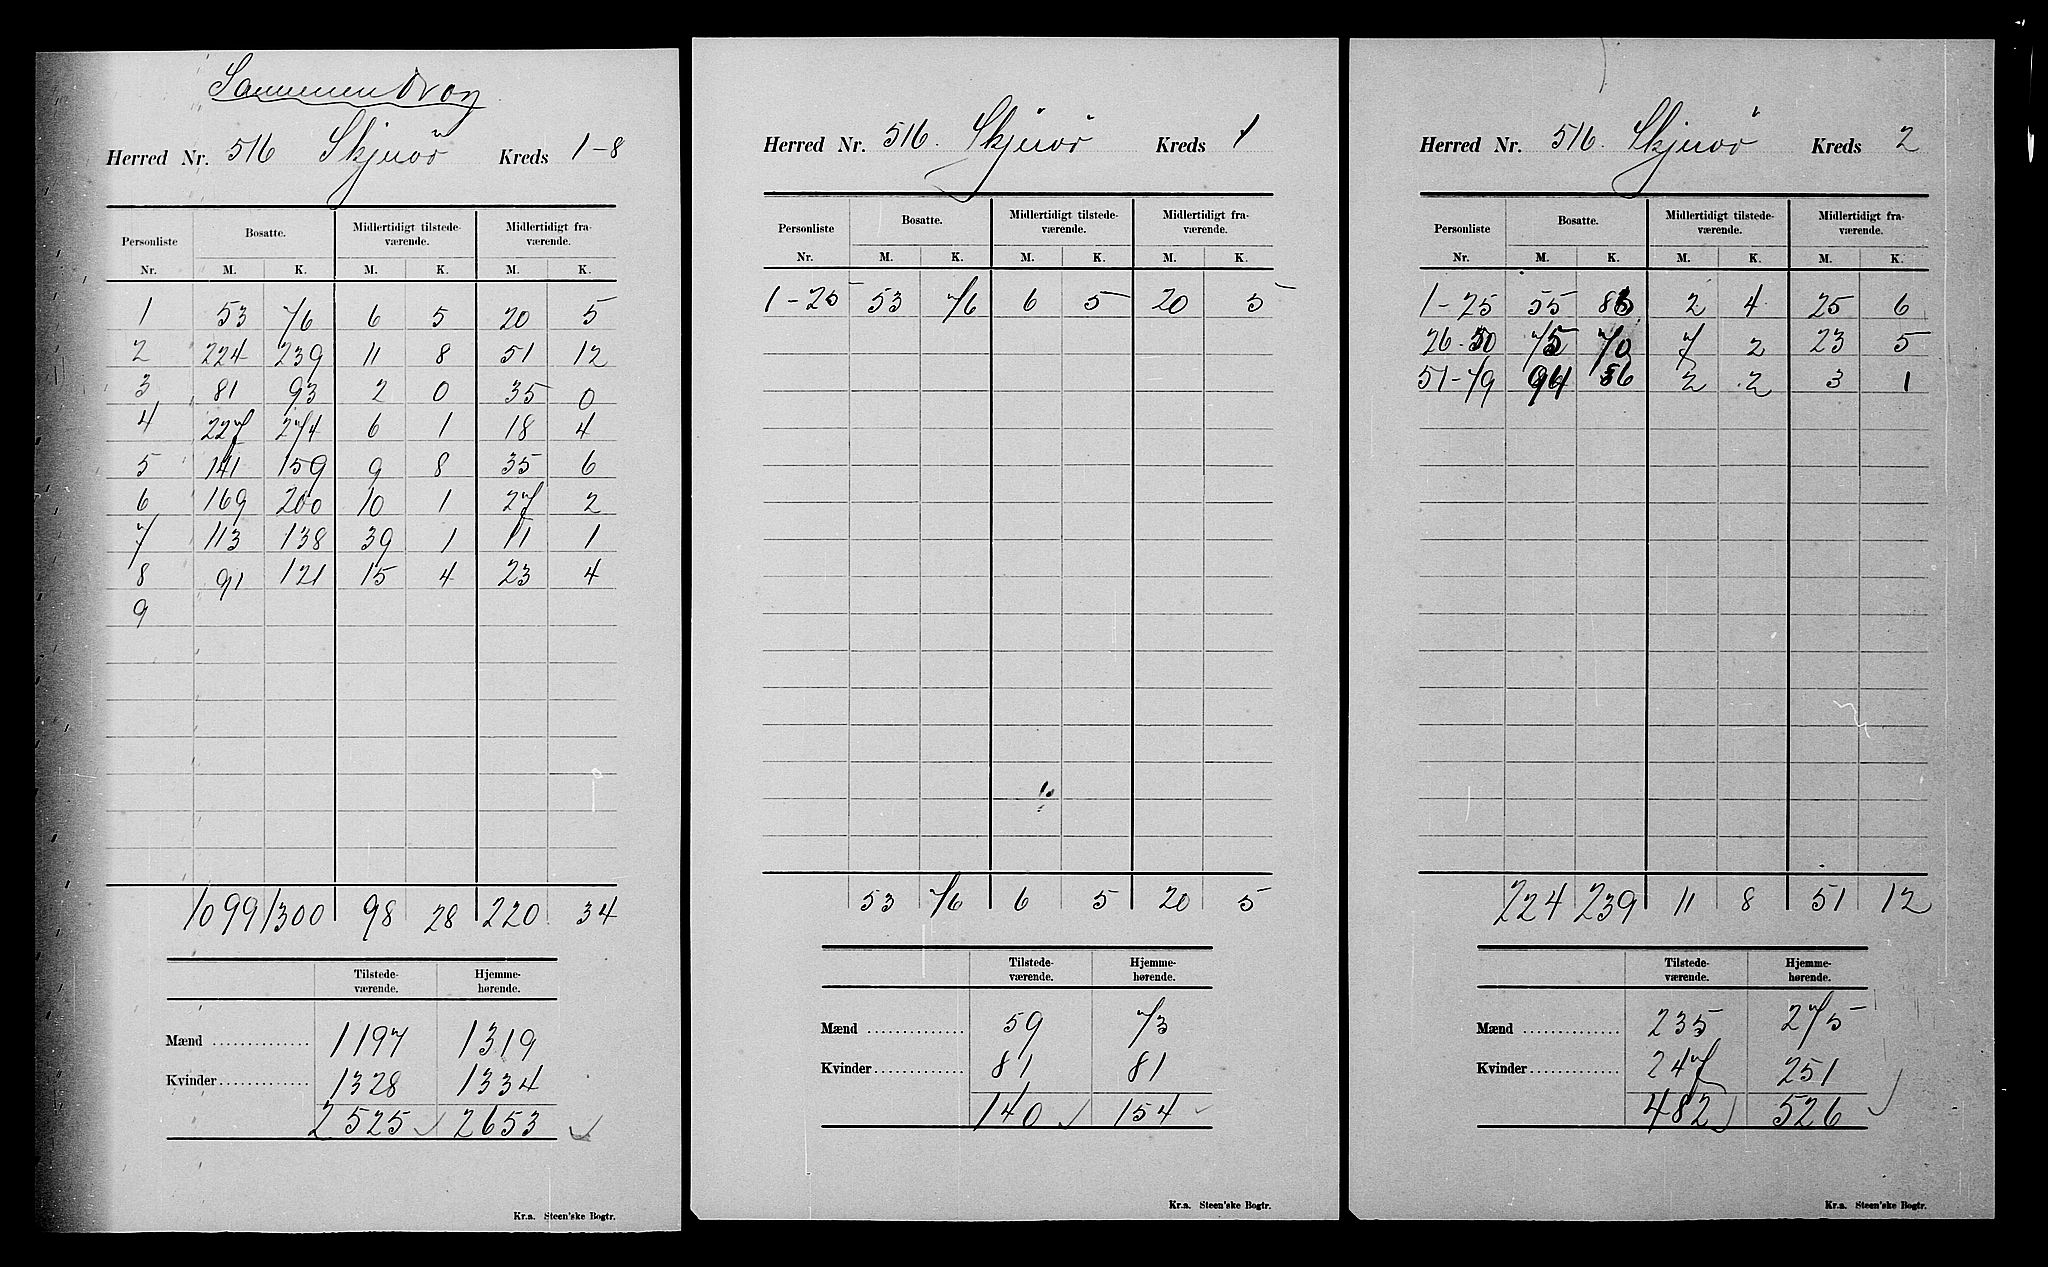 Sammendrag
Herred Nr. 516 Skjnør Kreds 1-8
Personliste Bosatte. Midlertidigt tilstede- Midlertidigt fra-
værende. værende.
Nr. M. K. M. K. M. K.
1 53 76 6 5 20 5
2 224 239 11 8 51 12
3 81 93 2 0 35 0
4 227 274 6 1 18 4
5 141 159 9 8 35 6
6 169 200 10 1 27 2
7 113 138 39 1 11 1
8 91 121 15 4 23 4
9
1099 1300 98 28 220 34
Tilstede- Hjemme-
værende. hørende.
Mænd 1197 1319
Kvinder 1328 1334
2525 2653
Kr.a. Steen'ske Bogtr.
Herred Nr. 516. Skjnør Kreds 1
Personliste Bosatte. Midlertidigt tilstede- Midlertidigt fra-
værende. værende.
Nr. M. K. M. K. M. K.
1-25 53 76 6 5 20 5
53 76 6 5 20 5
Tilstede- Hjemme-
værende. hørende.
Mænd 59 73
Kvinder 81 81
140 154
Kr.a. Steen'ske Bogtr.
Herred Nr. 516. Skjnør Kreds 2
Personliste Bosatte. Midlertidigt tilstede- Midlertidigt fra-
værende. værende.
Nr. M. K. M. K. M. K.
1-25 55 83 2 4 25 6
26-50 75 70 7 2 23 5
51-79 94 86 2 2 3 1
224 239 11 8 51 12
Tilstede- Hjemme-
værende. hørende.
Mænd 235 275
Kvinder 247 251
482 526
Kr.a. Steen'ske Bogtr.